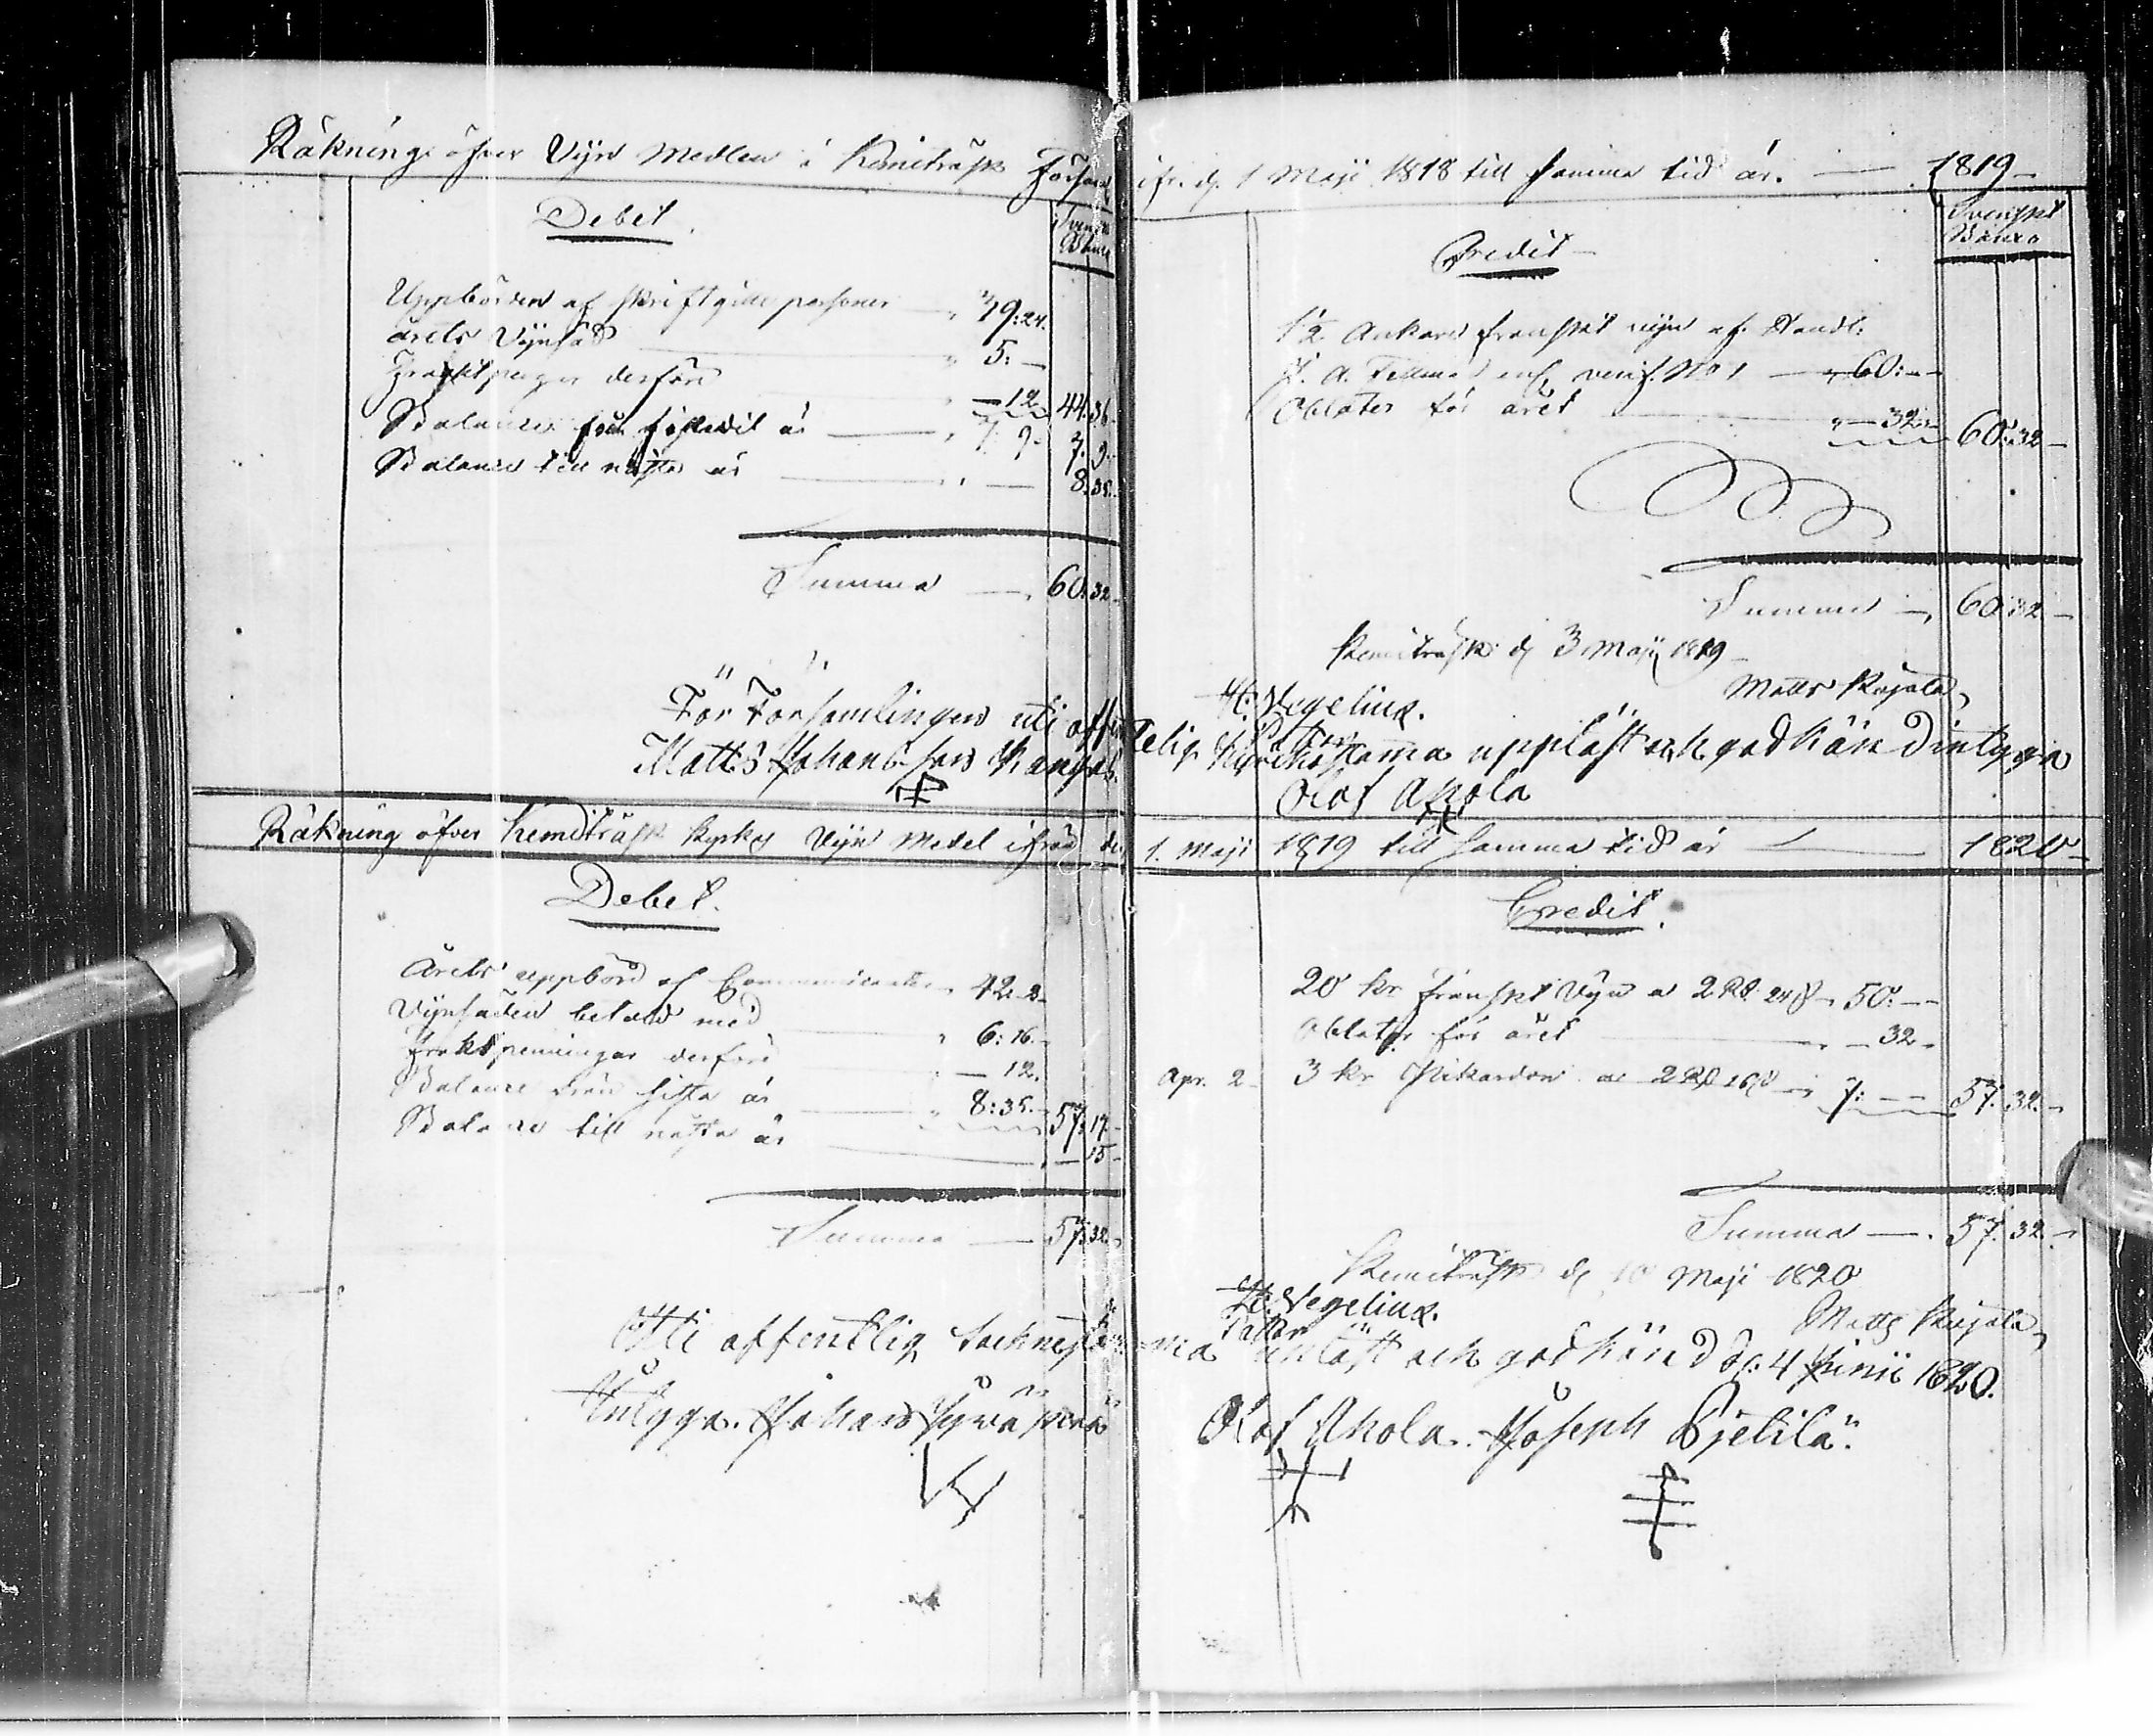 Räkning öfver Vijn Medlen i Kemiträsk Försam
Debet.
Svenskt
Banco
Uppbörden af skriftgille personer — " 39:24.
årets Vijnsäd — " 5: —
Fraktpenger derföre — " — 12. 44. 36.
Balance från förledit år — " 7. 9. 7. 9.
Balance till nästa år — " — 8. 35.
Summa — 60. 32.
För Församlingen uti offen
Matts Johansson Kangas
Räkning öfver Kemiträsk Kyrkas Vijn Medel ifrån den
Debet.
Årets uppbörd af Communicanter " 42. 2.
Vijnsäden betald med — " 6: 16.
fraktpenningar derföre — " — 12.
Balance från sista år — " 8: 35. 57: 17.
Balance till nästa år — — 15
Summa — 57: 32.
Uti offentlig Sockenstäm
Intyga. Johan Hyväperä
ifr. d. 1 Maji 1818 till samma tid år. — 1819 —
Credit —
Svenskt
Banco
1½ Ankare franskt vijn af Handl:
J. A. enl. verif. No 1 — " 60: —
Oblater för året — " — 32. 60: 32 —
Summa — 60: 32 —
Kemiträsk d. 3 Maji 1819
Matts Kujala
H: Wegelius.
Pastor
telig Kyrkostämma uppläst och godkänd intyga
Olof Ahola
1. Maji 1819 till samma tid år — 1820 —
Credit.
20 kr franskt Vijn a 2 Rd. 24 s — 50: —
Oblater för året — " — 32.
Apr. 2. 3 kr Pikardon a 2 Rd 16 s — 7: — 57: 32. —
Summa — 57. 32. —
Kemiträsk d. 10 Maji 1820
H: Wegelius.
Pastor
Matts Kujala
ma upläst och godkänd d: 4 Junii 1820.
Olof Ahola. Joseph Pjetilä.